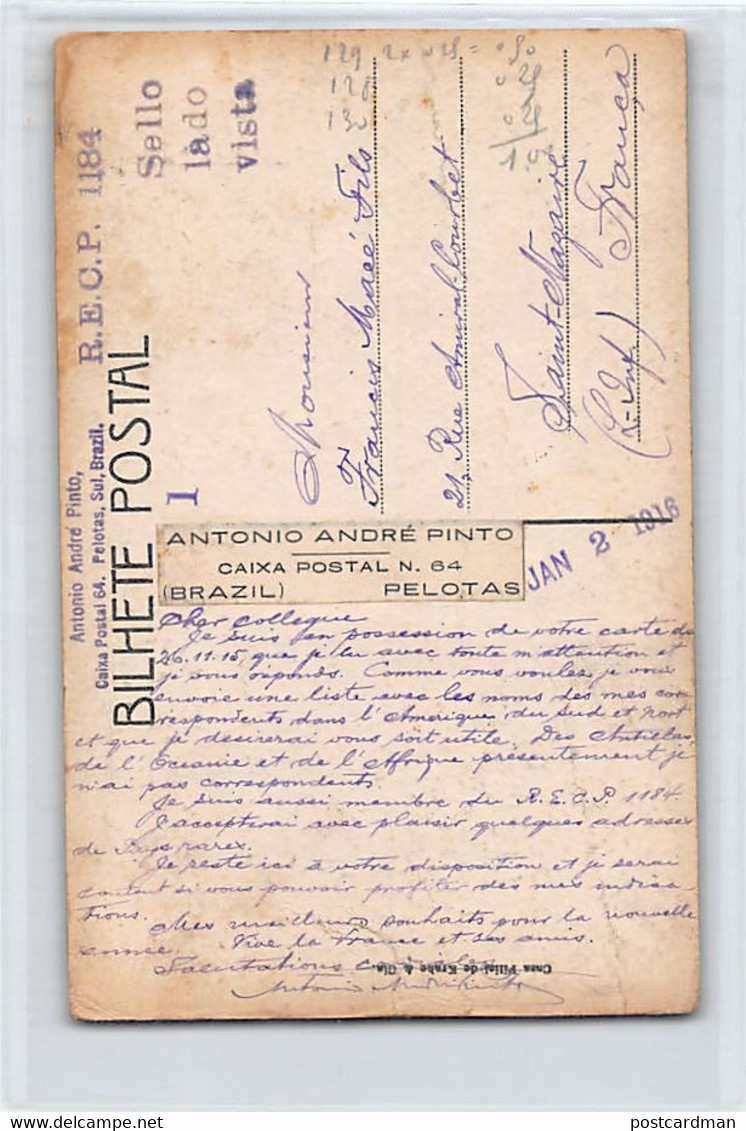 Antonio André Pinto,
Caixa Postal 64. Pelotas, Sul, Brazil.
R.E.C.P. 1184
BILHETE POSTAL
Sello
lado
vista
1
129 2x 0 25 = 0 50
128
130
Monsieur
Francis Macé Fils
21, Rue Amiral Courbet
Saint-Nazaire
(L-Inf.) França
ANTONIO ANDRÉ PINTO
CAIXA POSTAL N. 64
(BRAZIL) PELOTAS
JAN 2 1916
Cher collegue
Je suis en possession de votre carte du
26.11.15, que j'i lu avec toute m'attention et
je vous réponds. Comme vous voulez je vous
envoie une liste avec les noms des mes cor
respondents dans l'Amérique du Sud et Nort
et que je desirerai vous soit utile. Des Antilas,
de l'Oceanie et de l'Afrique présentement je
n'ai pas correspondents.
Je suis aussi membre du R.E.C.P. 1184.
J'accepterai avec plaisir quelques adresses
de Pays rares.
Je reste ici à votre disposition et je serai
content si vous pouvoir profiter des mes indica-
tions.
Mes meilleurs souhaits pour la nouvelle
année. Vive la France et ses amis.
Salutations
Casa Filial de Krahe & Cia.
postcardman